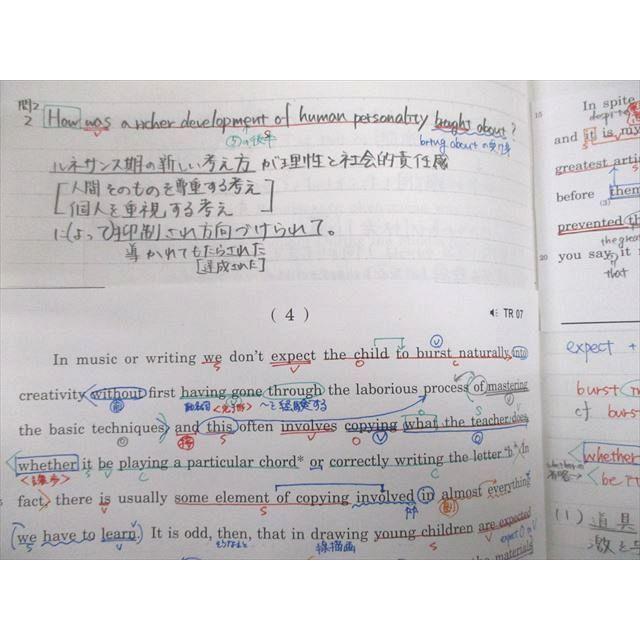 問2
How was a richer development of human personality brought about?
bring about の受身
ルネサンス期の新しい考え方が理性と社会的責任感
[人間そのものを尊重する考え]
[個人を重視する考え]
によって抑制され方向づけられて。
導かれてもたらされた
[達成された]
(4)
TR 07
In music or writing we don't expect the child to burst naturally into
creativity without first having gone through the laborious process of mastering
動名詞 〈完了形〉 〜を経験する
the basic techniques, and this often involves copying what the teacher does,
whether it be playing a particular chord* or correctly writing the letter "b". In
〈譲歩〉
fact, there is usually some element of copying involved in almost everything
we have to learn. It is odd, then, that in drawing young children are expected
線描画
the materials
15
In spite
despite
and it is my
greatest artis
before them
(3)
prevented th
the great
20
you say it
that
expect +
burst
cf burs
whether
be
(1) 道具